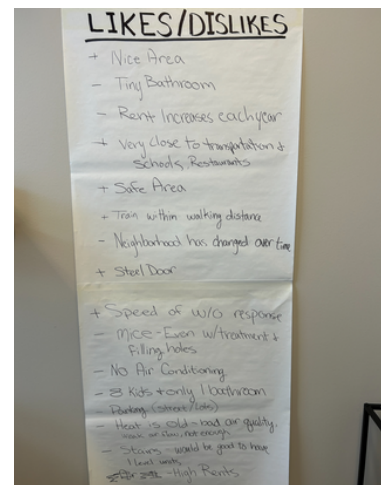 LIKES/DISLIKES
+ Nice Area
- Tiny Bathroom
- Rent Increases each year
+ Very close to transportation +
schools, Restaurants
+ Safe Area
+ Train within walking distance
- Neighborhood has changed over time
+ Steel Door
+ Speed of w/o response
- Mice - Even w/treatment +
filling holes
- No Air Conditioning
- 8 Kids + only 1 bathroom
- Parking (Street/Lots)
- Heat is old - bad air quality,
not enough
- Stairs - would be good to have
1 level units
- High Rents